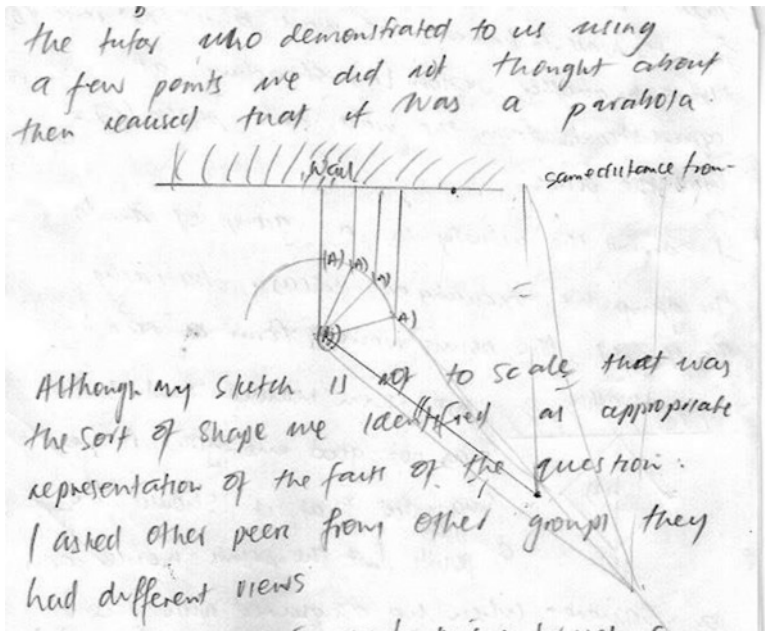 the tutor who demonstrated to us using
a few points we did not thought about
then realised that it was a parabola.
Wall
same distance from
(A) (A) (A) (A)
Although my sketch is not to scale that was
the sort of shape we identified as appropriate
representation of the facts of the question.
I asked other peers from other groups they
had different views